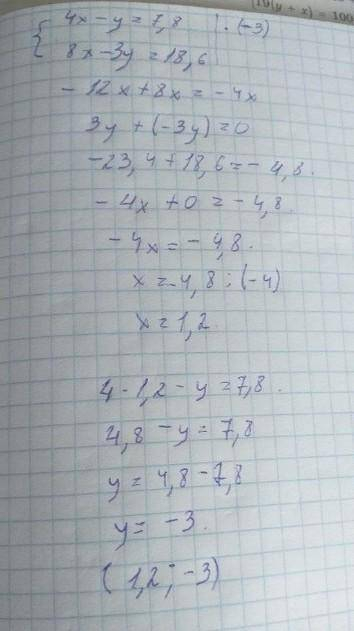 19(y + x) = 100
{ 4x - y = 7,8 | · (-3)
8x - 3y = 18,6
- 12x + 8x = - 4x
3y + (-3y) = 0
- 23,4 + 18,6 = - 4,8.
- 4x + 0 = - 4,8.
- 4x = - 4,8.
x = -4,8 : (-4)
x = 1,2.
4 · 1,2 - y = 7,8.
4,8 - y = 7,8
y = 4,8 - 7,8
y = -3.
(1,2; -3)